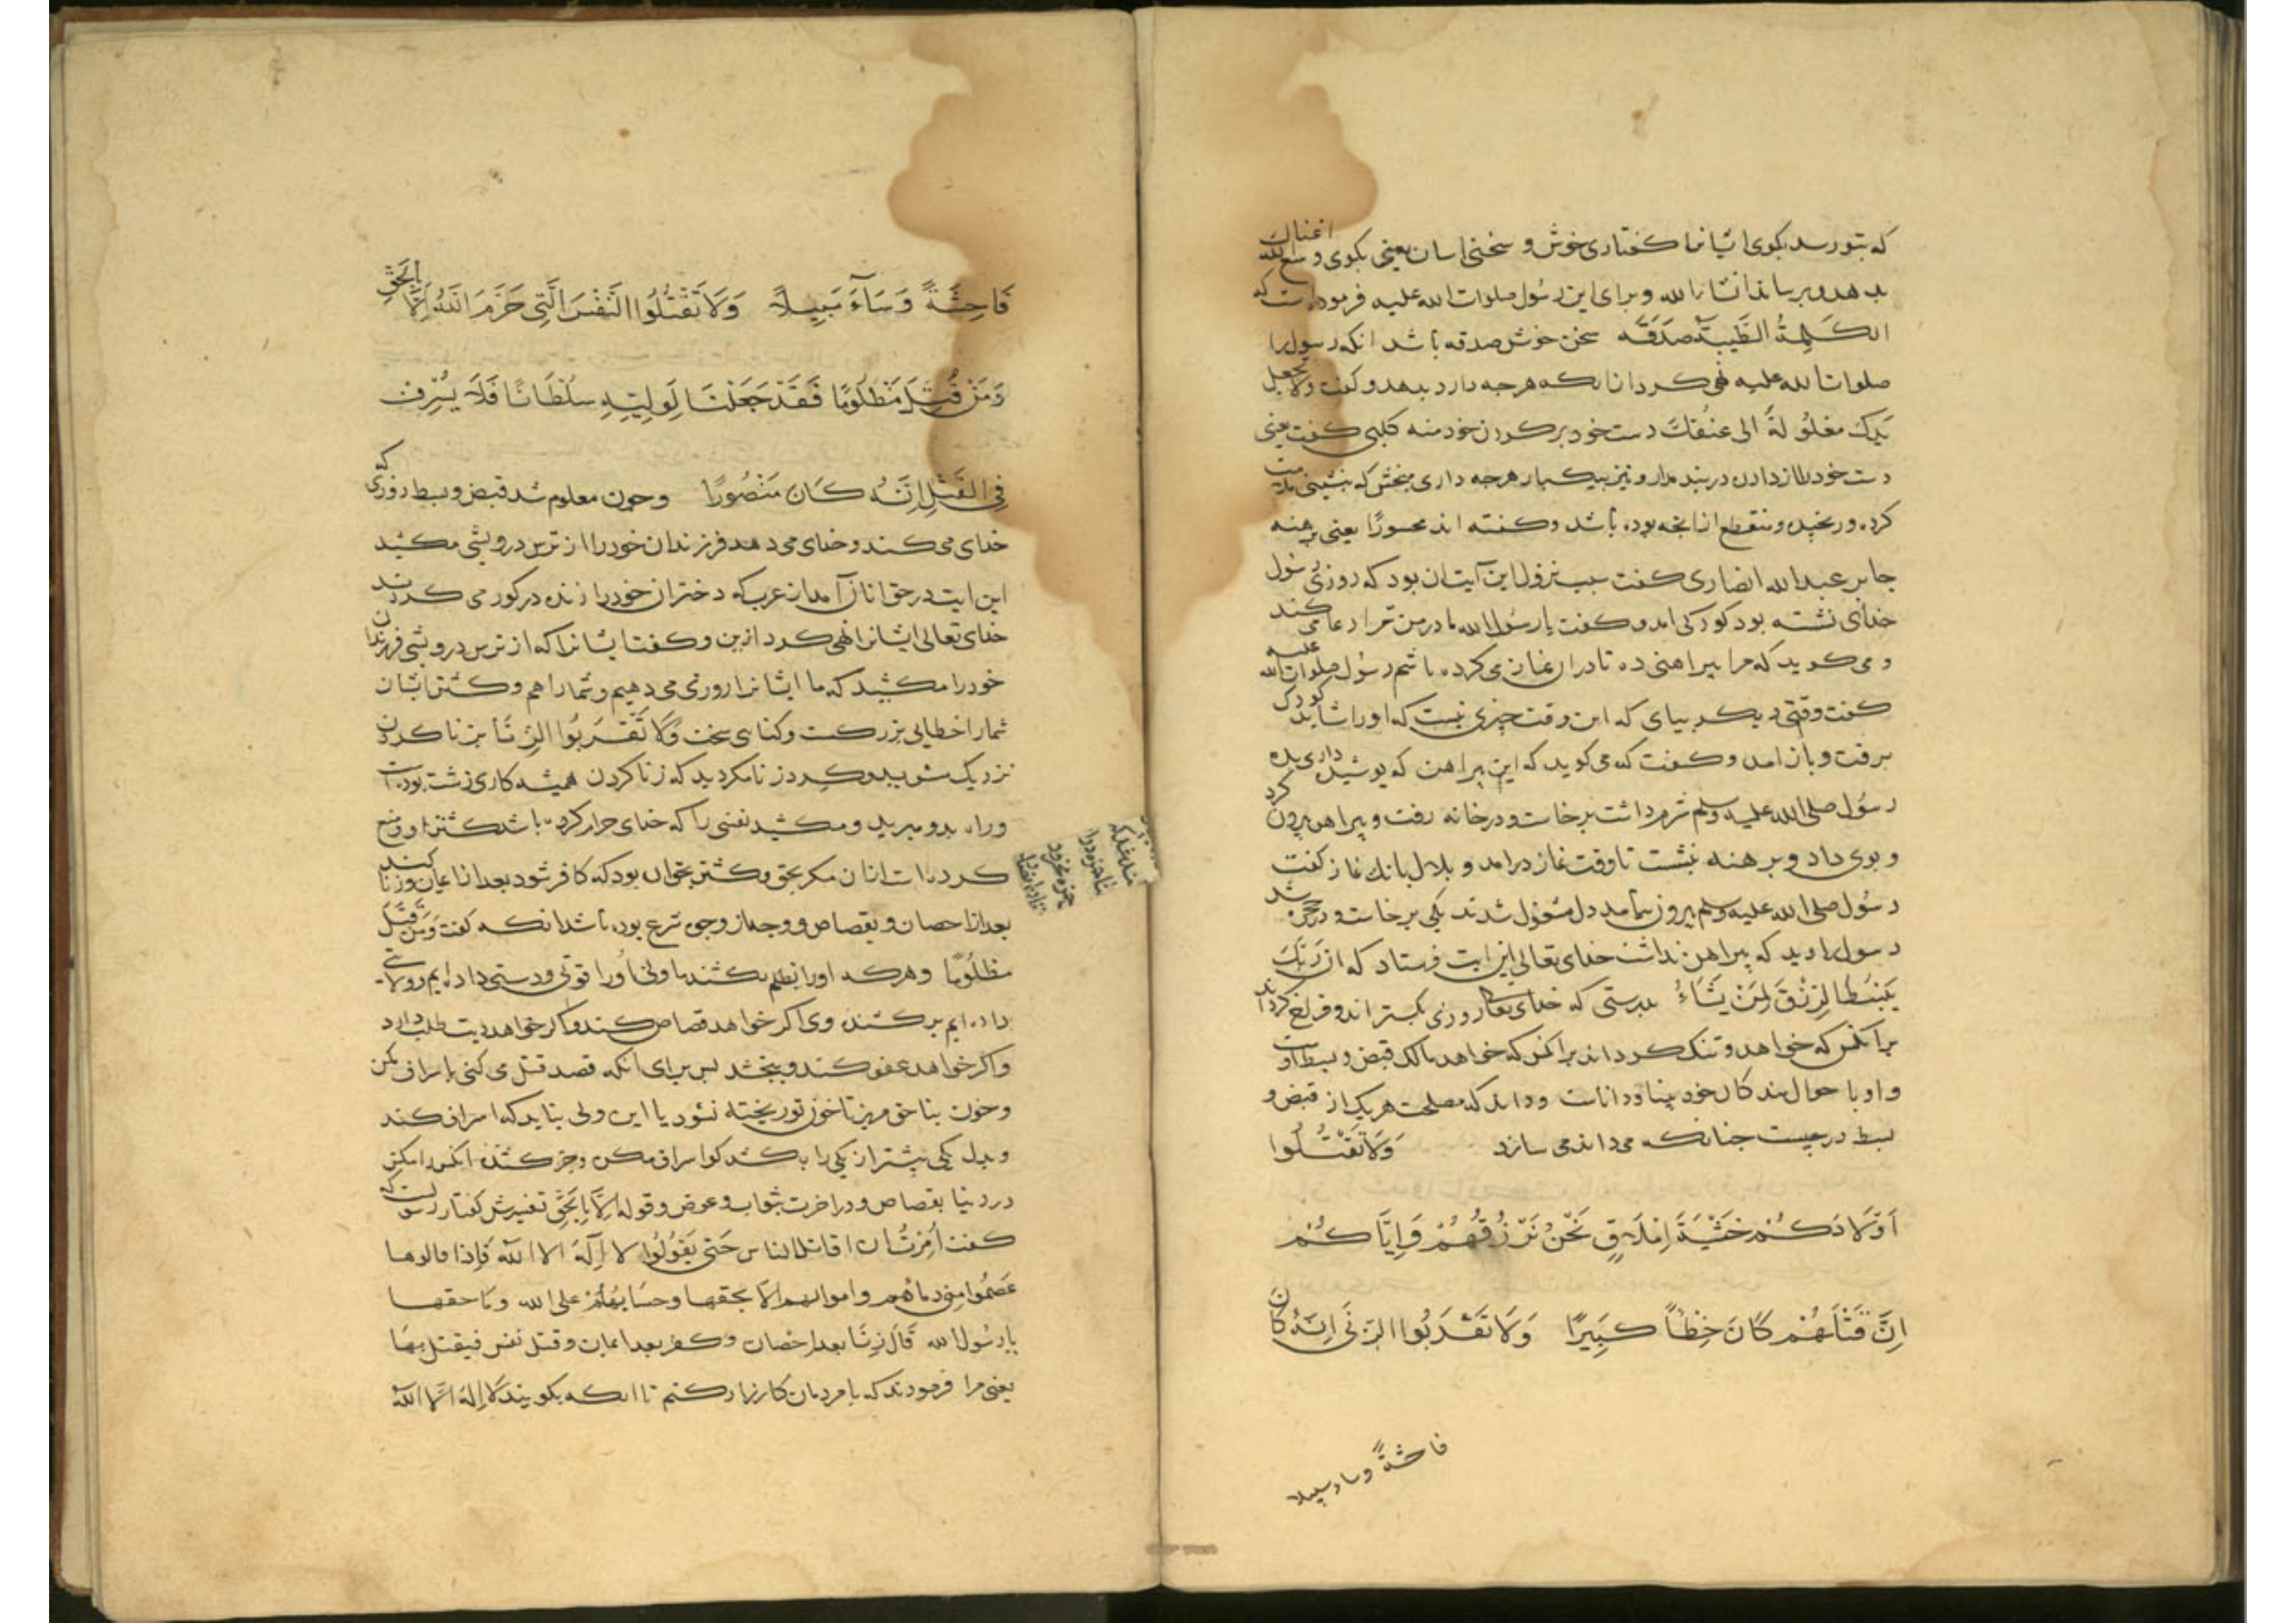 که بتو رسد بکوی ایشانرا کفتاری خوش و سخنی اسان یعنی بکوی وسع الله اغناک
بدهد و برساند انشا الله و برای این رسول صلوات الله علیه فرموده است که
الکَلِمةُ الطَّیِّبَة صَدَقَه سخن خوش صدقه باشد انکه رسول را
صلوات الله علیه نهی کرد انانکه هرجه دارد بدهد و کفت ولا تجعل
یَدک مغلُولةً الی عنُقکَ دست خود بر کردن خود منه کلبی کفت یعنی
دست خود را از دادن در بند مدار و نیز بیکبار هرجه داری مبخش که بنشینی
کرده و رنجیده و منقطع از انجه بوده باشد و کفته اند محسورًا یعنی برهنه
جابر عبدالله انصاری کفت سبب نزول این آیت ان بود که روزی رسول
خدای نشسته بود کودکی امد و کفت یا رسول الله مادر من ترا دعا می کند
و می کوید که مرا پیراهنی ده تا در ان نماز می کرده باشم رسول صلوات الله علیه
کفت وقتی دیکر بیای که این وقت چیزی نیست که او را شاید کودک
برفت و باز امد و کفت که می کوید که این پیراهن که پوشیده داری بده
رسول صلی الله علیه وسلم شرم داشت برخاست و در خانه رفت و پیراهن بیرون کرد
و بوی داد و برهنه بنشست تا وقت نماز درامد و بلال بانک نماز کفت
رسول صلی الله علیه وسلم بیرون نیامد دل مشغول شدند یکی برخاست و در حجره شد
رسول را دید که پیراهن نداشت خدای تعالی این ایت فرستاد که ان رَبَّکَ
یَبْسُطُ الرِزْقَ لِمَنْ یَشَاءُ بدرستی که خدای تعالی روزی بکستراند و فراخ کرداند
بر انکس که خواهد و تنک کرداند بر انکس که خواهد مالک قبض و بسط اوست
و او باحوال بندکان خود بینا و داناست و داند که مصلحت هر یک از قبض و
بسط در چیست چنانکه می داند می سازد وَلَا تَقْتُلُوا
اَوْلَادَکُمْ خَشْیَةَ اِمْلَاقٍ نَحْنُ نَرْزُقُهُمْ وَاِیَّاکُمْ
اِنَّ قَتْلَهُمْ کَانَ خِطْأً کَبِیرًا وَلَا تَقْرَبُوا الزِنَی اِنَّهُ کَانَ
فاحشةً وساء سبیلا
فَاحِشَةً وَسَآءَ سَبِیلاً وَلَا تَقْتُلُوا النَّفْسَ الَّتِی حَرَّمَ اللَّهُ اِلَّا بِالحَقِّ
وَمَنْ قُتِلَ مَظْلُومًا فَقَدْ جَعَلْنَا لِوَلِیِّهِ سُلْطَانًا فَلَا یُسْرِفْ
فِی القَتْلِ اِنَّهُ کَانَ مَنْصُورًا و چون معلوم شد که قبض و بسط روزی
خدای می کند و خدای می دهد فرزندان خود را از ترس درویشی مکشید
این ایت در حق انان آمد از عرب که دختران خود را زنده در کور می کردند
خدای تعالی ایشانرا نهی کرد ازین و کفت ایشانرا که از ترس درویشی فرزندان
خود را مکشید که ما ایشانرا روزی می دهیم و شما را هم و کشتن ایشان
شما را خطایی بزرکست و کناهی سخت وَلَا تَقْرَبُوا الزِنَا بزنا کردن
نزدیک مشوید و کرد زنا مکردید که زنا کردن همیشه کاری زشت بوده است
و راه بد و میرید و مکشید نفسی را که خدای حرام کرده باشد کشتن او و منع
کرده است از ان مکر بحق و کشتن بحق ان بود که کافر شود بعد از ایمان و زنا کند
بعد از احصان و بقصاص و وجهی از وجوه شرع بوده باشد انکه کفت وَمَنْ قُتِلَ
مظلُومًا و هرکه او را بظلم بکشند ما ولی او را قوتی و دستی داده ایم و ولایتی
داده ایم بر کشنده وی اکر خواهد قصاص کند و اکر خواهد دیت طلب دارد
و اکر خواهد عفو کند و ببخشد پس برای انکه قصد قتل می کنی اسراف مکن
و خون بناحق مریز تا خون تو ریخته نشود یا این ولی نباید که اسراف کند
و بدل یکی بیشتر از یکی را بکشد کو اسراف مکن و جز کشنده انکس را مکش
در دنیا بقصاص و در اخرت بثواب و عوض و قوله اِلَّا بِالحَقِّ تفسیرش کفتار رسولست که
کفت اُمِرْتُ ان اقاتل الناس حَتی یَقُولُوا لا اِلَهَ الا الله فَاِذا قالوها
عَصَمُوا مِنی دماءَهم و اموالهم الّا بحقها و حسَابُهُمْ علی الله و مَا حقها
یا رسُول الله قَالَ زِنًا بعد احصان و کفر بعد ایمان و قتل نفس فیقتل بهَا
یعنی مرا فرمودند که با مردمان کارزار کنم تا انکه بکویند لا اِلهَ اِلّا الله